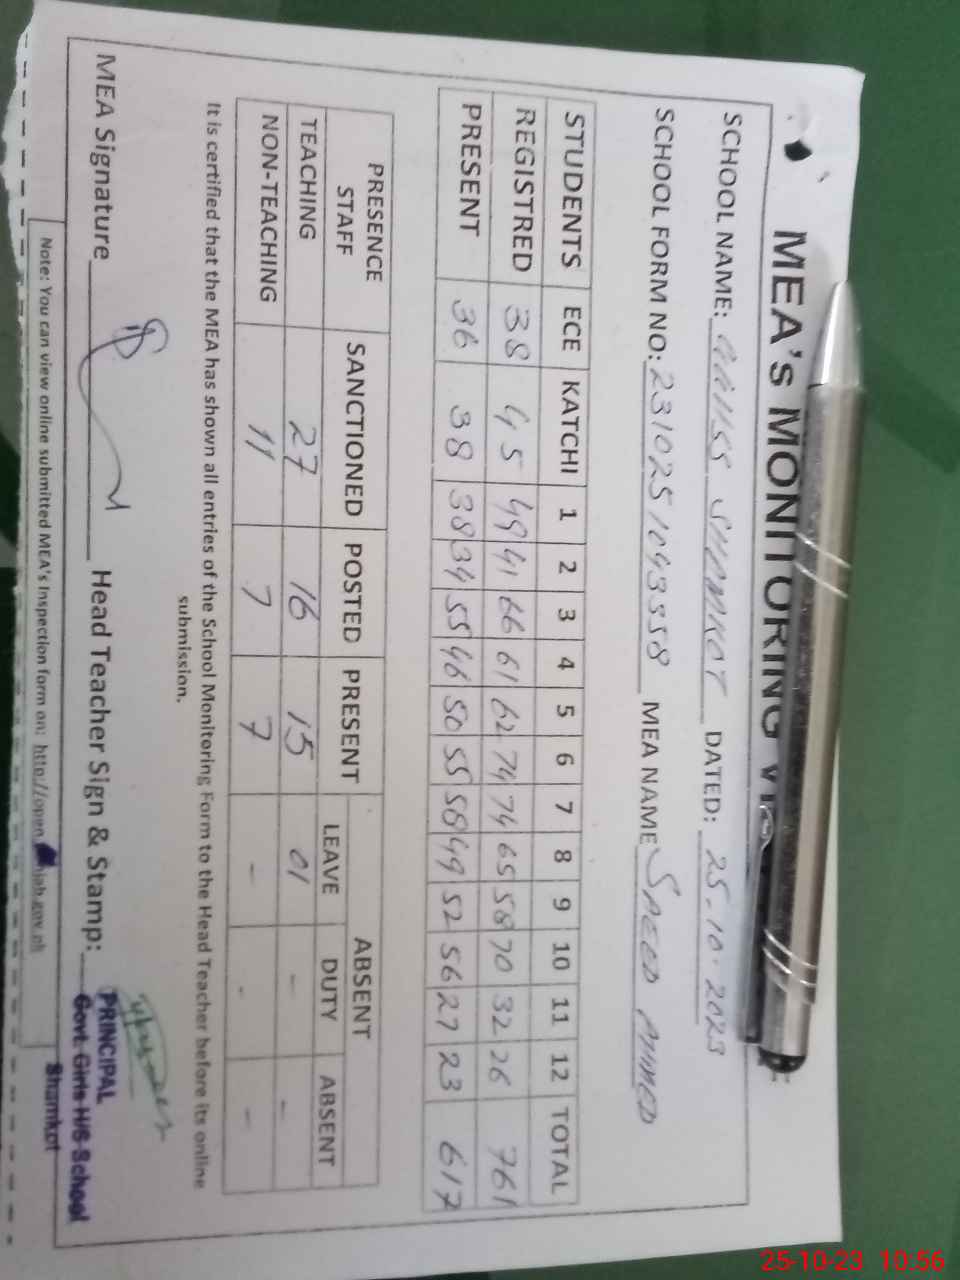 MEA's MONITORING
SCHOOL NAME: GGHSS SHAMKOT DATED: 25-10-2023
SCHOOL FORM NO: MEA NAME SAEED AHMED
STUDENTS ECE KATCHI 1 2 3 4 5 6 7 8 9 10 11 12 TOTAL
REGISTRED 38 45 49 41 66 61 62 74 74 65 58 70 32 26 761
PRESENT 36 38 38 34 55 46 50 55 58 49 52 56 27 23 617
PRESENCE STAFF SANCTIONED POSTED PRESENT ABSENT
LEAVE DUTY ABSENT
TEACHING 27 16 15 01 - -
NON-TEACHING 11 7 7 - - -
It is certified that the MEA has shown all entries of the School Monitoring Form to the Head Teacher before its online
submission.
MEA Signature Head Teacher Sign & Stamp:
PRINCIPAL
Govt. Girls H/S School
Shamkot
Note: You can view online submitted MEA's Inspection form on: http://open.
25-10-23 10:56